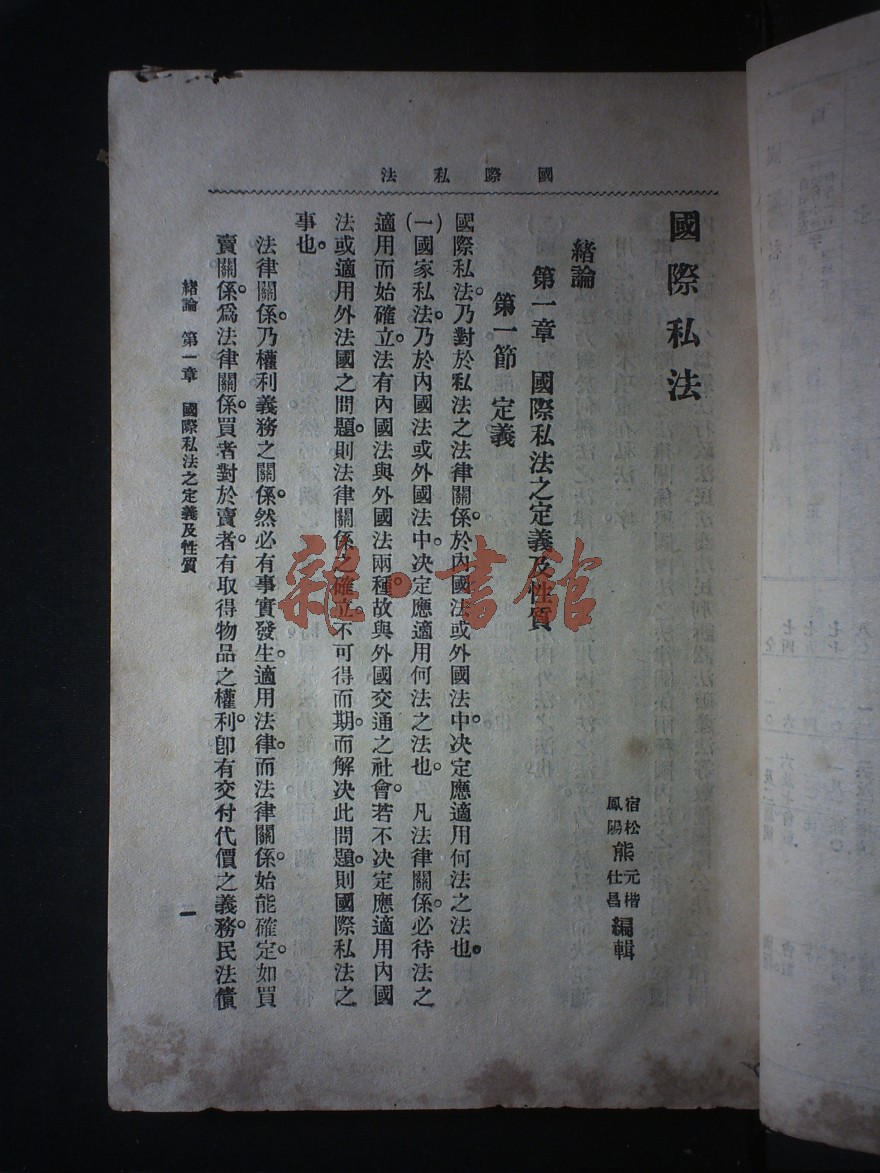 國際私法
國際私法
宿松 熊元楷
鳳陽 熊仕昌
編輯
緒論
第一章 國際私法之定義及性質
第一節 定義
國際私法。乃對於私法之法律關係。於內國法或外國法中。決定應適用何法之法也。
(一)國家私法。乃於內國法或外國法中。決定應適用何法之法也。凡法律關係。必待法之
適用而始確立。法有內國法與外國法兩種。故與外國交通之社會。若不決定應適用內國
法或適用外法國之問題。則法律關係之確立。不可得而期。而解決此問題。則國際私法之
事也。
法律關係。乃權利義務之關係。然必有事實發生。適用法律。而法律關係。始能確定。如買
賣關係。爲法律關係。買者對於賣者。有取得物品之權利。卽有交付代價之義務。民法債
緒論 第一章 國際私法之定義及性質
一
雜·書館